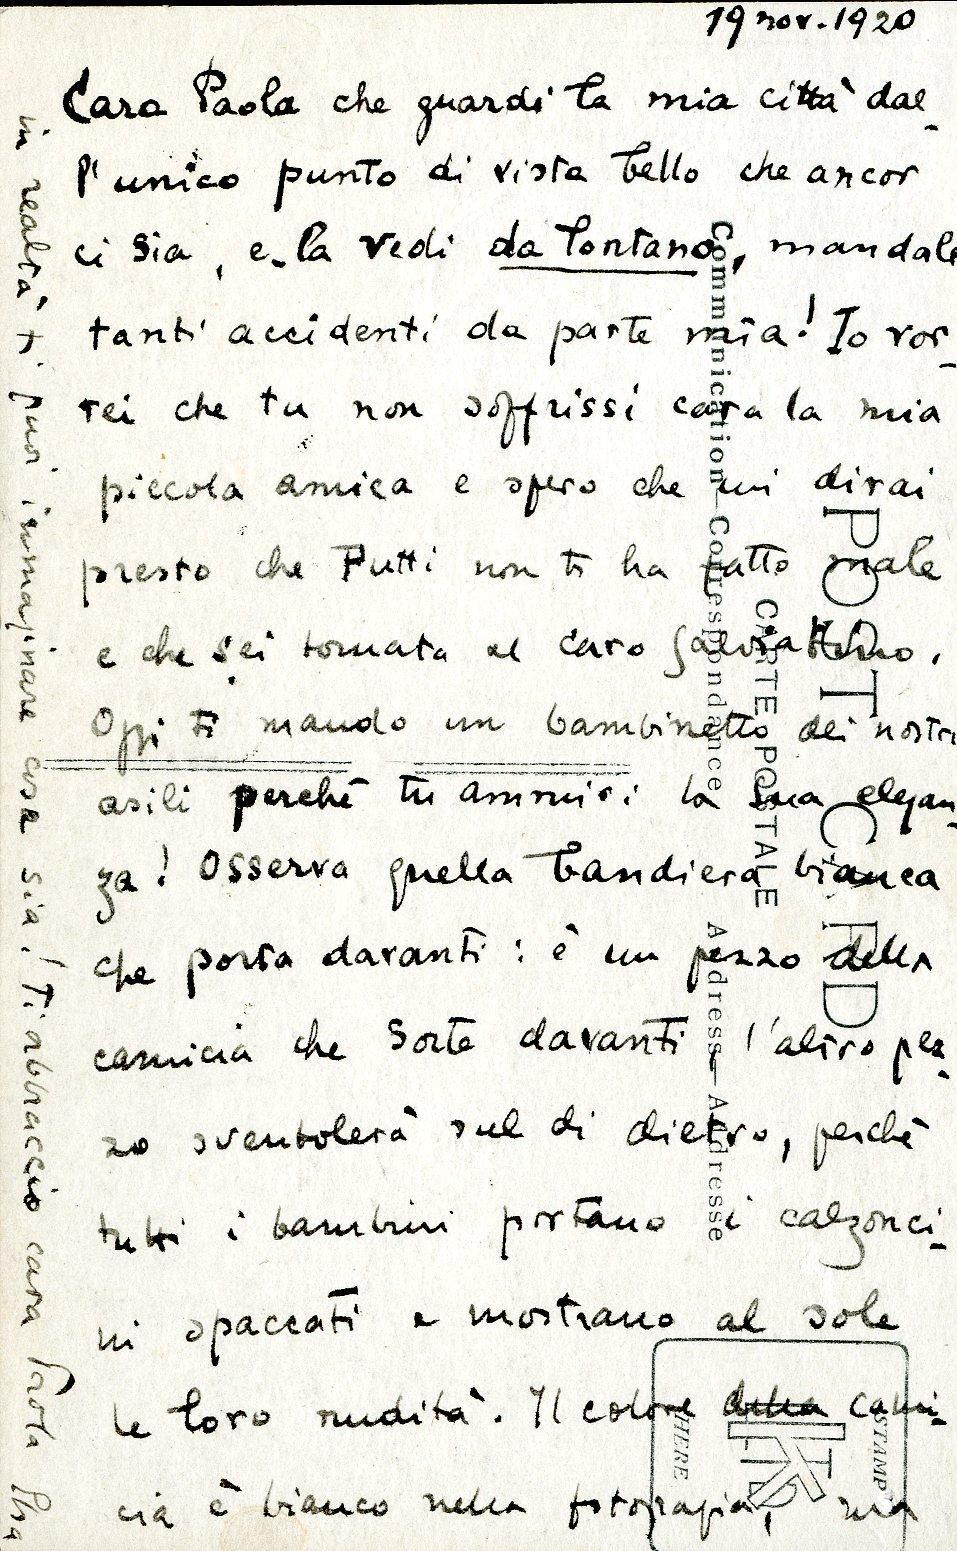 19 nov. 1920
Cara Paola che guardi la mia città dal-
l'unico punto di vista bello che ancor
ci sia, e la vedi da lontano, mandale
tanti accidenti da parte mia! Io vor-
rei che tu non soffrissi cara la mia
piccola amica e spero che mi dirai
presto che Putti non ti ha fatto male
e che sei tornata al caro
Oggi ti mando un bambinetto dei nostri
asili perché tu ammiri la sua elegan-
za! Osserva quella bandiera bianca
che porta davanti: è un pezzo della
camicia che sorte davanti, l'altro pez-
zo sventolerà sul di dietro, perché
tutti i bambini portano i calzonci-
ni spaccati e mostrano al sole
le loro nudità. Il colore della cami-
cia è bianco nella fotografia, ma
in realtà ti puoi immaginare cosa sia! Ti abbraccio cara Paola
POST CARD
CARTE POSTALE
Communication—Correspondance
Address—Adresse
STAMP
HERE